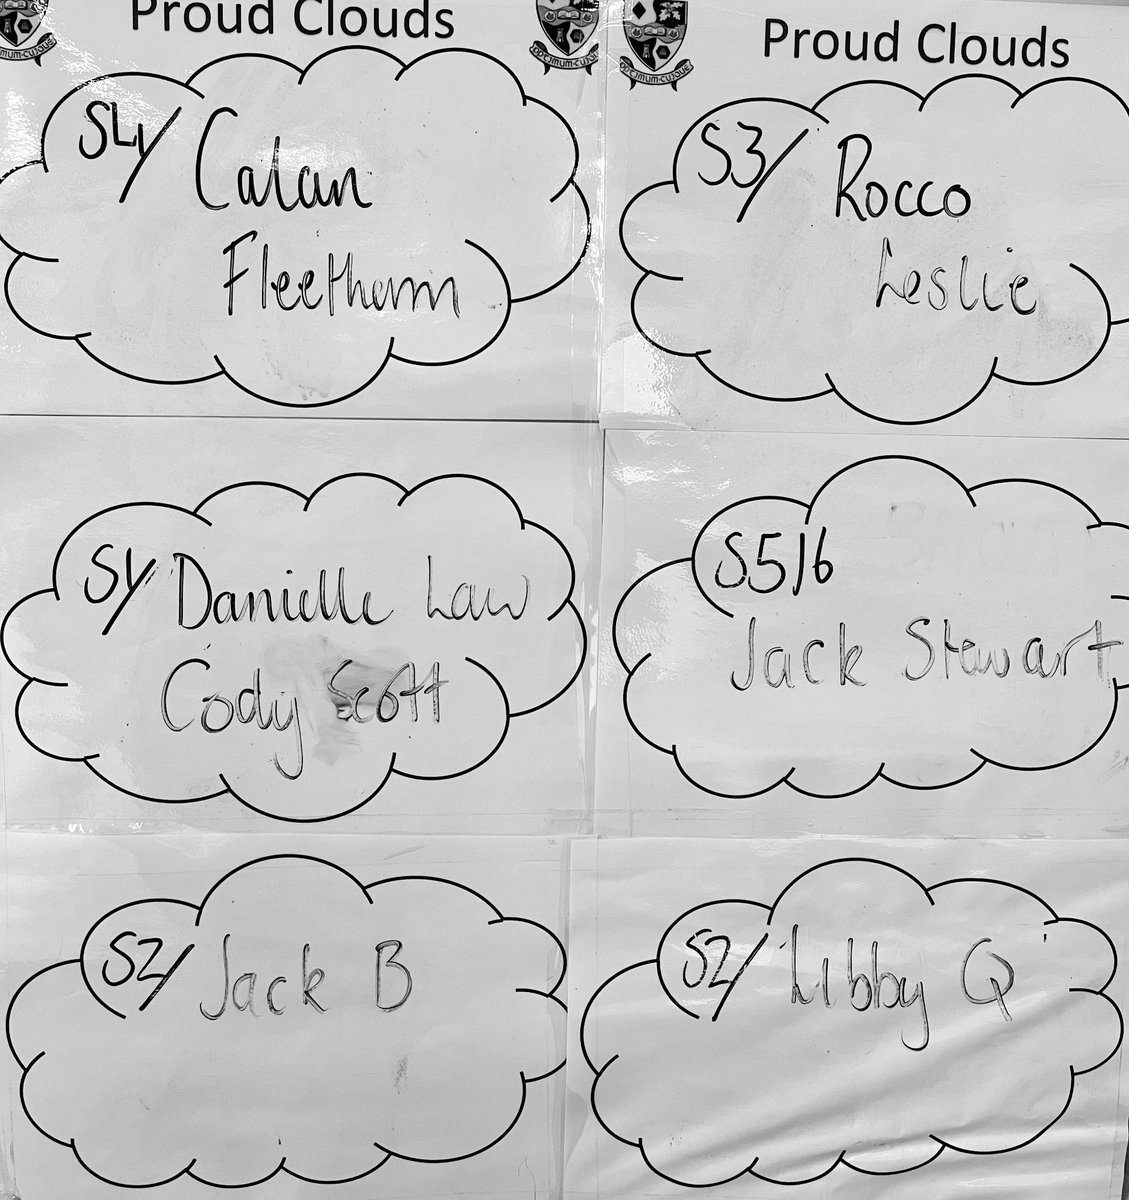 Proud Clouds
Proud Clouds
S4/ Calan
Fleetham
S3/ Rocco
Leslie
S1/ Danielle Law
Cody Scott
S5/6
Jack Stewart
S2/ Jack B
S2/ Libby Q